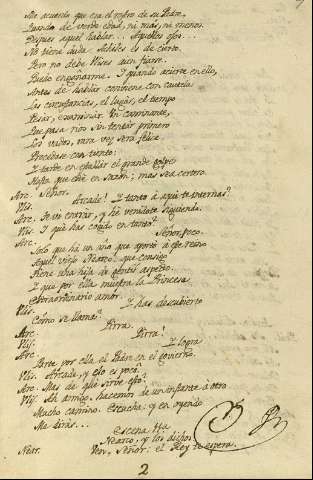 me acuerdo que era el rostro de su Padre,
Quando de verde edad, ni mas, ni menos.
Despues aquel hablar... Aquellos ojos...
No tiene duda: Achiles es de cierto.
Pero no debe Ulises aun fiarse.
Puedo engañarme. I quando acierte en ello,
Antes de hablar conviene con cautela
Las circunstancias, el lugar, el tiempo
Pesar, examinar. Un caminante,
Que pasa rios sin tentar primero
Los vados, rara vez será feliz.
Procedase con tiento:
I tarde en estallar el grande golpe
Hasta que esté en sazon; mas sea certero.
Arc. Señor.
Ulis. Arcade! I tanto á aqui te internas?
Arc. Te vi entrar, y hé venidote siguiendo.
Ulis. I qué has cogido en tanto?
Arc. Señor, poco.
Solo que há un año que aportó á este reyno
Aquel viejo Nearco: que consigo
tiene una hija de gentil aspecto.
I que por ella muestra la Princesa
Extraordinario amor.
Ulis. I has descubierto
Cómo se llama?
Arc. Pirra.
Ulis. Pirra!
Arc. I logra
Parte por ella el Padre en el govierno.
Ulis. Arcade, y eso es poco?
Arc. Mas de qué sirve eso?
Ulis. Ah amigo, hacemos de un instante á otro
Mucho camino. Escucha; y en oyendo
Me dirás...
Escena IIa
Nearco, y los dichos
Near. Ven, Señor: el Rey te espera.
2